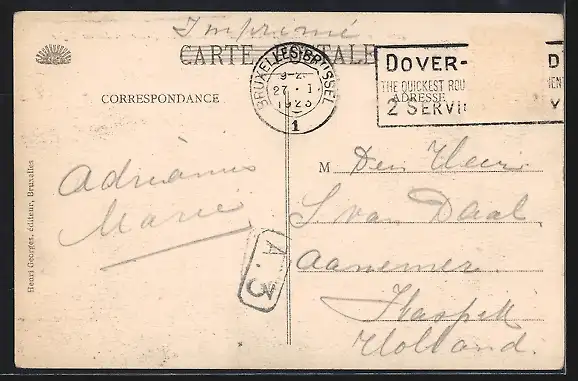 Imprimé
CARTE POSTALE
BRUXELLES-BRUSSEL
27 · I
1923
1
DOVER-
THE QUICKEST
2
CORRESPONDANCE
ADRESSE
Adrianus
Marie
M Den Heer
S van Daal
Aannemer
Holland
A.3
Henri Georges, éditeur, Bruxelles